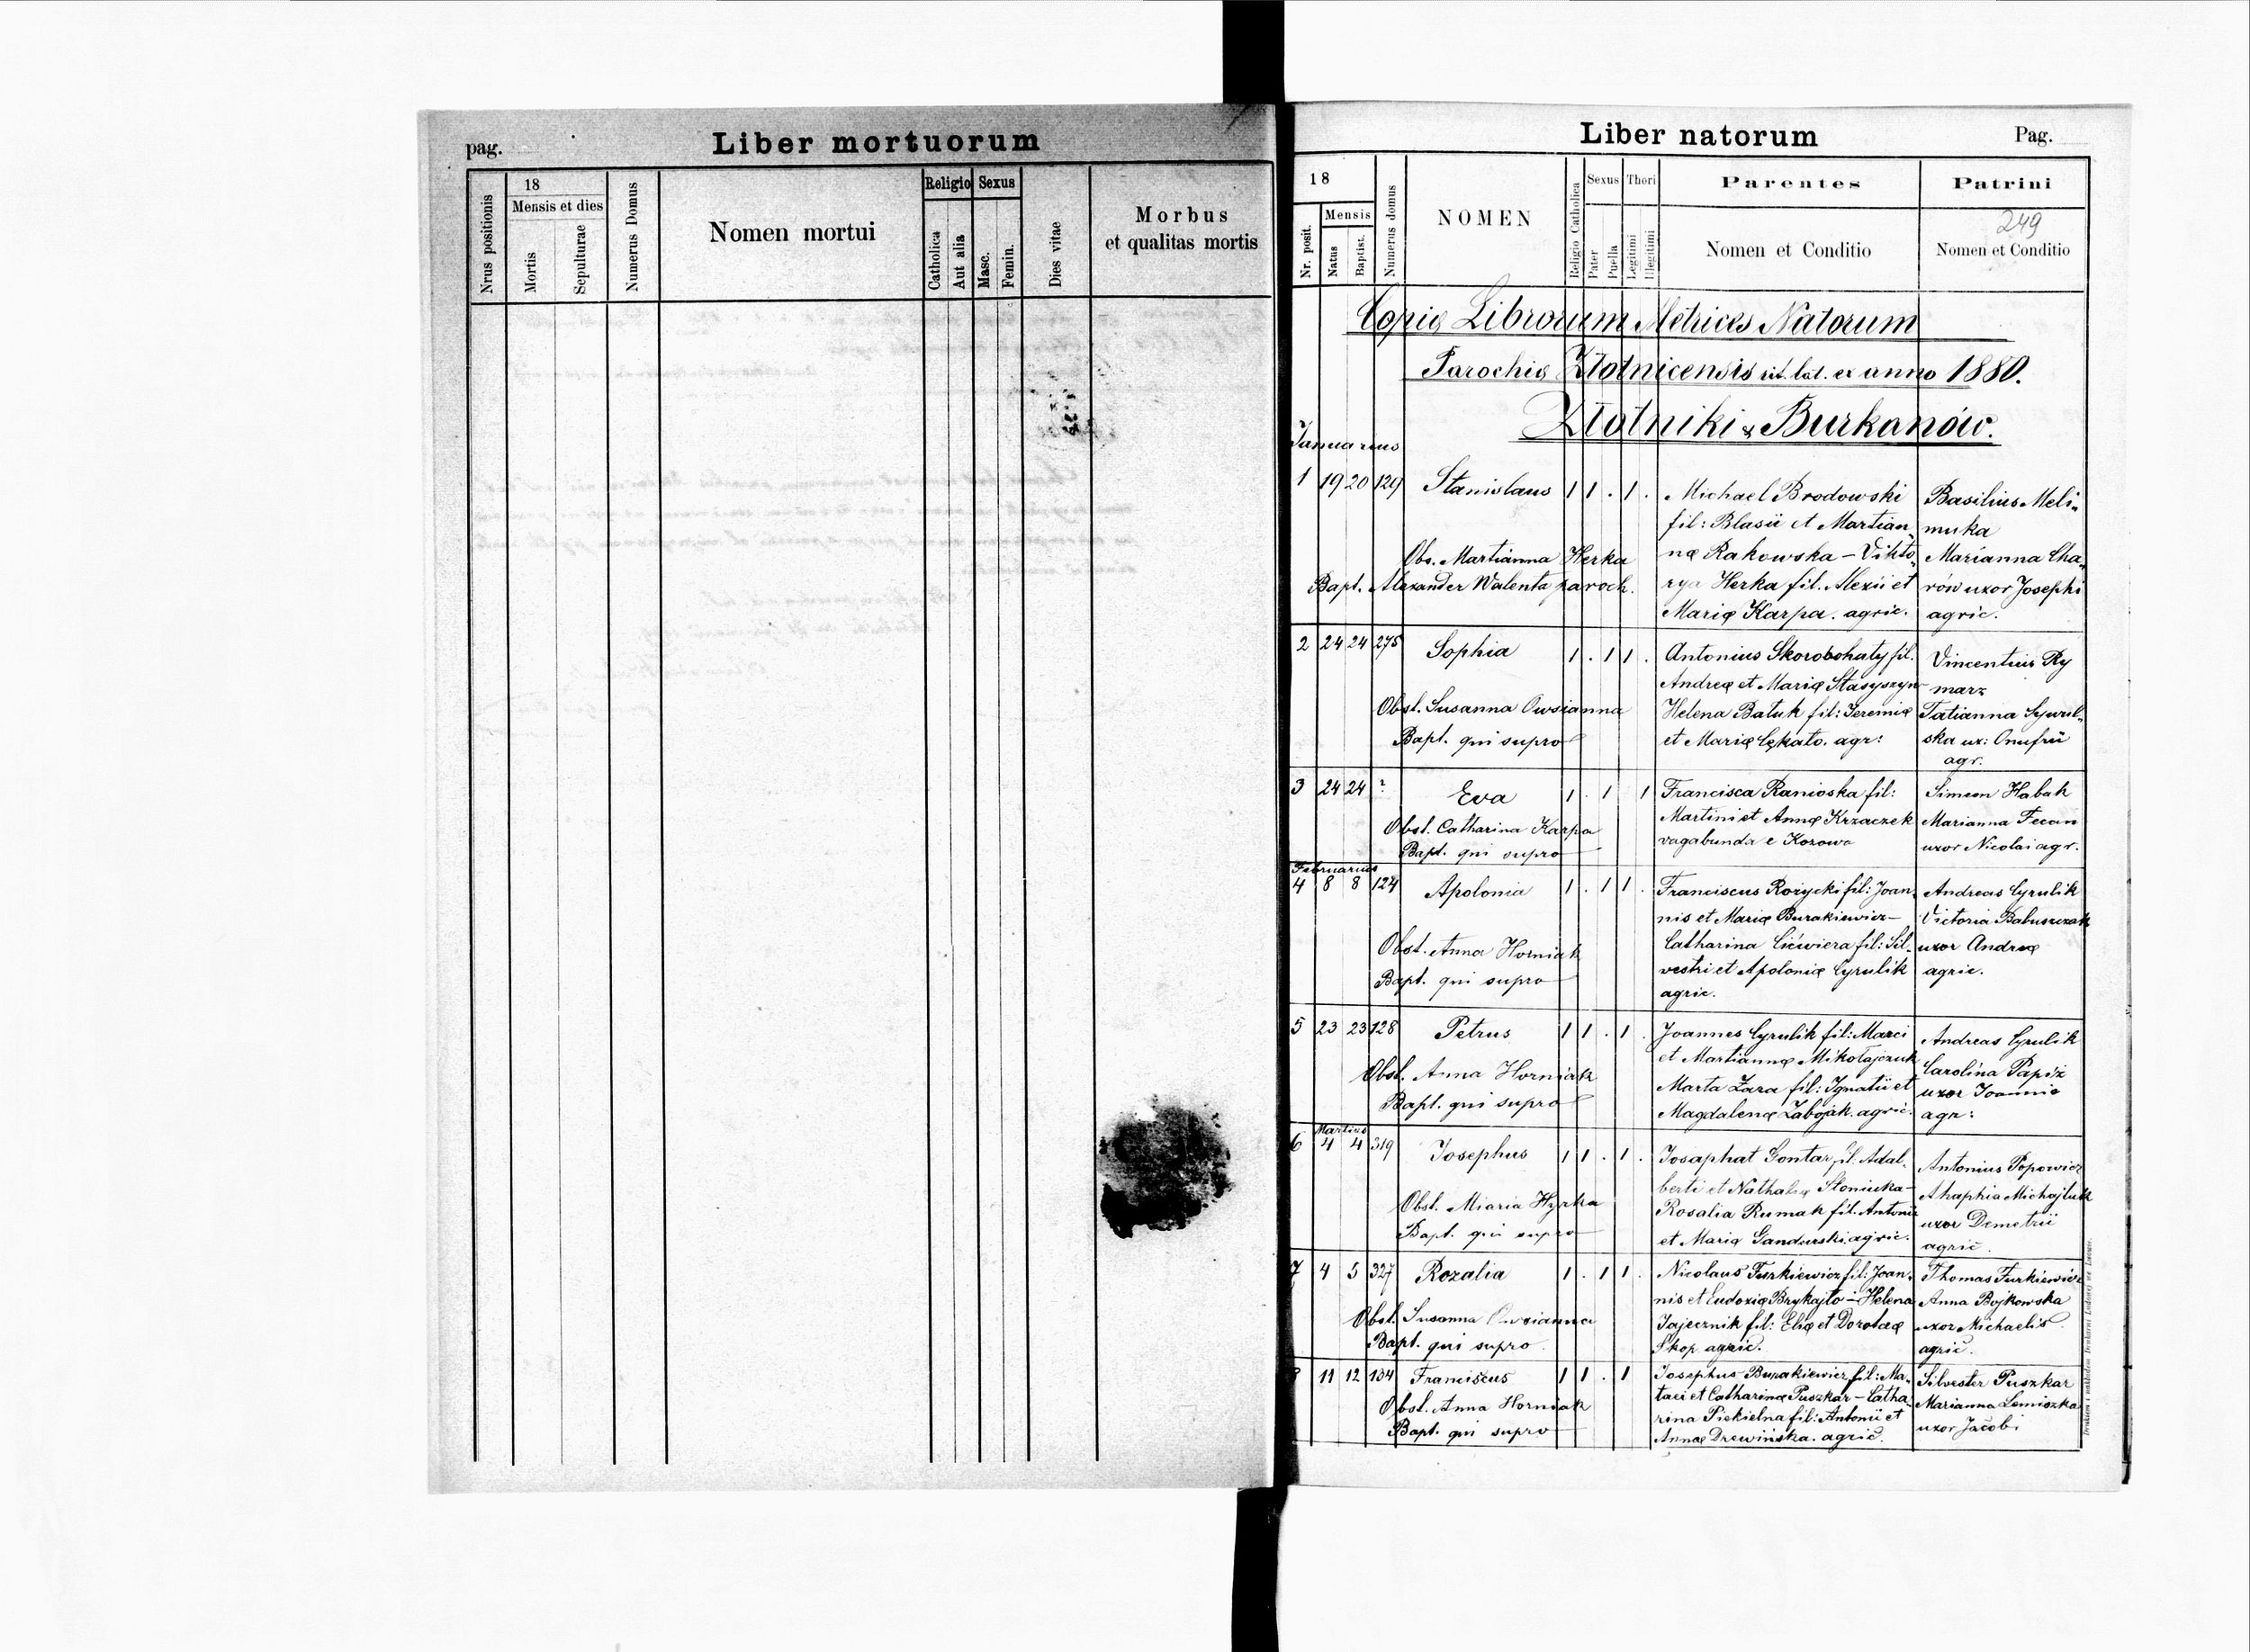 pag.
Liber mortuorum
Nrus positionis
18
Mensis et dies
Mortis
Sepulturae
Numerus Domus
Nomen mortui
Religio
Catholica
Aut alia
Sexus
Masc.
Femin.
Dies vitae
Morbus
et qualitas mortis
Liber natorum
Pag.
18
Nr. posit.
Mensis
Natus
Baptist.
Numerus domus
NOMEN
Religio Catholica
Sexus
Puer
Puella
Thori
Legitimi
Illegitimi
Parentes
Nomen et Conditio
Patrini
249
Nomen et Conditio
Copia Librorum Metrices Natorum
Parochiæ Złotnicensis rit. lat. ex anno 1880.
Złotniki & Burkanów.
Januarius
1 19 20 129 Stanislaus 1 1 . 1 .
Obs. Martianna Herka
Bapt. Alexander Walenta paroch.
Michael Brodowski
fil: Blasii et Martian„
næ Rakowska – Vikto„
rya Herka fil. Alexii et
Mariæ Karpa. agric.
Basilius Meli„
muka
Marianna Cha„
rów uxor Josephi
agric.
2 24 24 275 Sophia 1 . 1 1 .
Obst. Susanna Owsianna
Bapt. qui supra
Antonius Skorobohaty fil.
Andreæ et Mariæ Stasyszyn
Helena Batuk fil: Jeremiæ
et Mariæ Cękało. agr:
Vincentius Ry
marz
Tatianna
ska ux: Onufrii
agr.
3 24 24 ? Eva 1 . 1 1
Obst. Catharina Karpa
Bapt. qui supra
Francisca Ranioska fil:
Martini et Annæ Krzaczek
vagabunda e Kozowa
Simeon Habak
Marianna Fecan
uxor Nicolai agr.
Februarius
4 8 8 124 Apolonia 1 . 1 1 .
Obst. Anna Horniak
Bapt. qui supra
Franciscus Rożycki fil: Joan„
nis et Mariæ Burakiewicz –
Catharina Cićwiera fil: Sil„
vestri et Apoloniæ Cyrulik
agric.
Andreas Cyrulik
Victoria Babuszczak
uxor Andreæ
agric.
5 23 23 128 Petrus 1 1 . 1 .
Obst. Anna Horniak
Bapt. qui supra
Joannes Cyrulik fil: Marci
et Martiannæ Mikołajczuk
Marta Zara fil: Ignatii et
Magdalenæ Zabojak. agric.
Andreas Cyrulik
Carolina Papiż
uxor Joannis
agr:
Martius
6 4 4 319 Josephus 1 1 . 1 .
Obst. Miaria Hyrka
Bapt. qui supra
Josaphat Gontar fil. Adal„
berti et Nathaliæ Słoniuka –
Rosalia Rumak fil. Antonii
et Mariæ Gandurski agric.
Antonius Popowicz
Ahaphia Michajluk
uxor Demetrii
agric.
7 4 5 327 Rozalia 1 . 1 1 .
Obst. Susanna Owsianna
Bapt. qui supra
Nicolaus Furkiewicz fil: Joan„
nis et Eudoxiæ Brykajło – Helena
Jajecznik fil: Eliæ et Doroteæ
Skop agric.
Thomas Furkiewicz
Anna Bojkowska
uxor Michaelis
agric.
11 12 134 Franciscus 1 1 . 1
Obst. Anna Horniak
Bapt. qui supra
Josephus Burakiewicz fil: Ma„
taei et Catharinæ Puszkar – Catha„
rina Piekielna fil: Antonii et
Annæ Drewińska. agric.
Silvester Puszkar
Marianna Lemiszka
uxor Jacobi